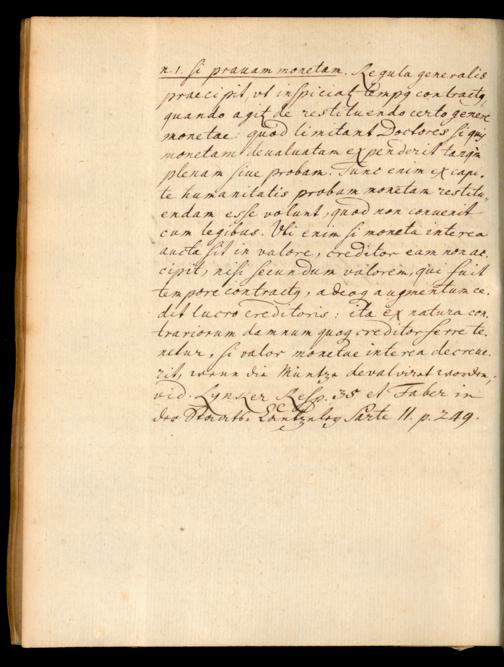 n. 1. si prauam monetam. Regula generalis
praecipit, vt inspiciat. tempq contractq,
quando agit. de restituendo certo genere
monetae: quod limitant Doctores si quis
monetam devaluatam expenderit tanqm
plenam siue probam. Tunc enim ex capi-
te humanitatis probam monetam restitu-
endam esse volunt, quod non conuenit
cum legibus. Vti enim si moneta interea
aucta sit in valore, creditor eam non ac-
cipit, nisi secundum valorem, qui fuit
tempore contractq, adeoq augmentum ce-
dit lucro creditoris: ita ex natura con-
trariorum damnum quoq creditor ferre te-
netur, si valor monetae interea decreue-
rit, wann die Müntze devalvirat worden,
vid. Lynker Resp. 35 et Faber in
der Staats Cantzeley Parte 11. p. 249.